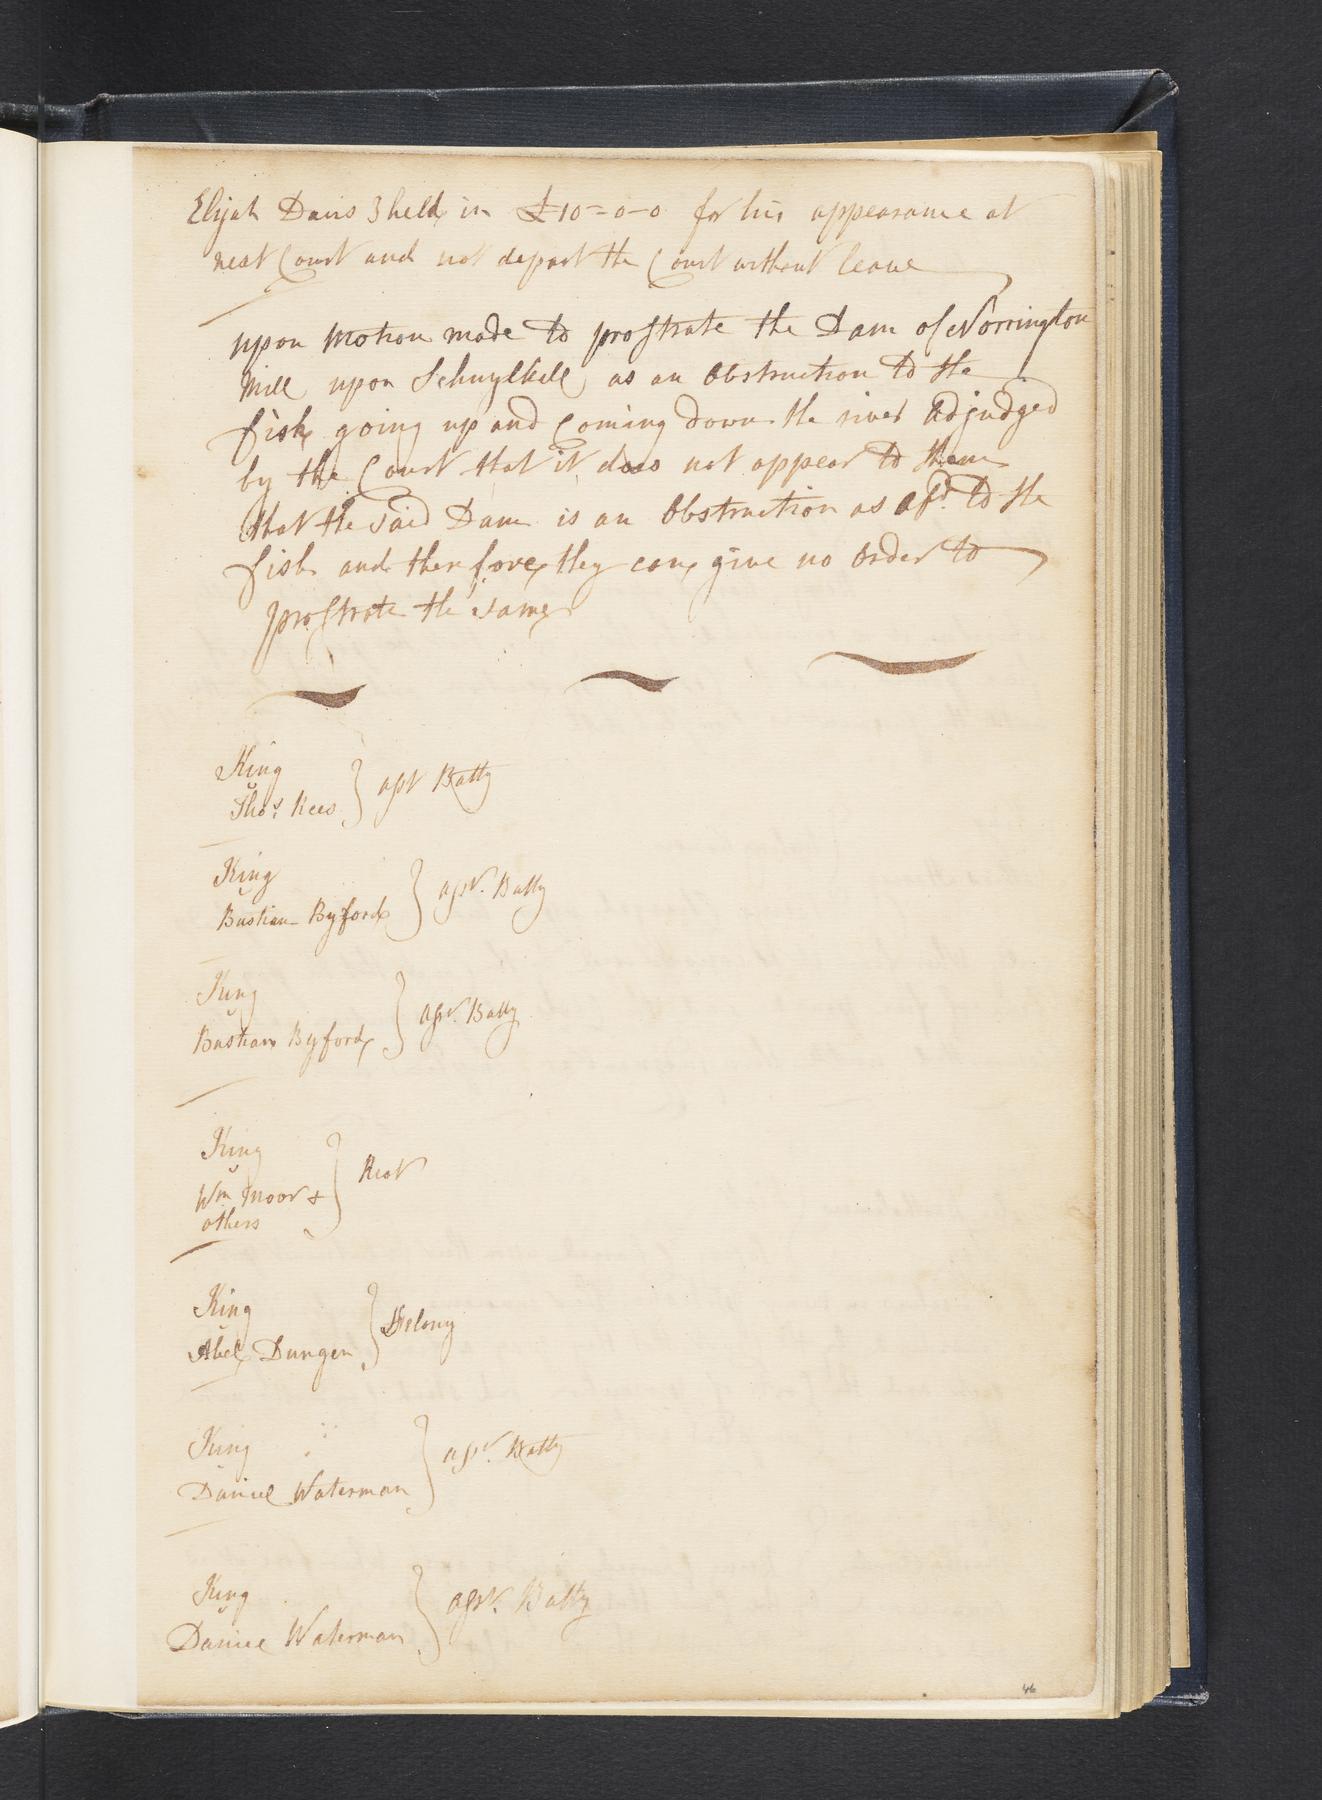 Elijah Davis } held in £10=0-0 for his appearance at
next Court and not depart the Court without leave
upon motion made to prostrate the Dam of Norrington
Mill upon Schuylkill as an Obstruction to the
fish going up and Coming down the river Adjudged
by the Court that it does not appear to them
that the said Dam is an Obstruction as afd. to the
fish and therefore they can give no order to
prostrate the same
King
v
Thos. Rees } asst Batty
King
v
Bastian Byford } asst. Batty
King
v
Bastian Byford } asst. Batty
King
v
Wm Moor & } Riot
others
King
v
Abel Dungen } Felony
King
Daniel Waterman } asst. Batty
King
v
Daniel Waterman } asst. Batty
46